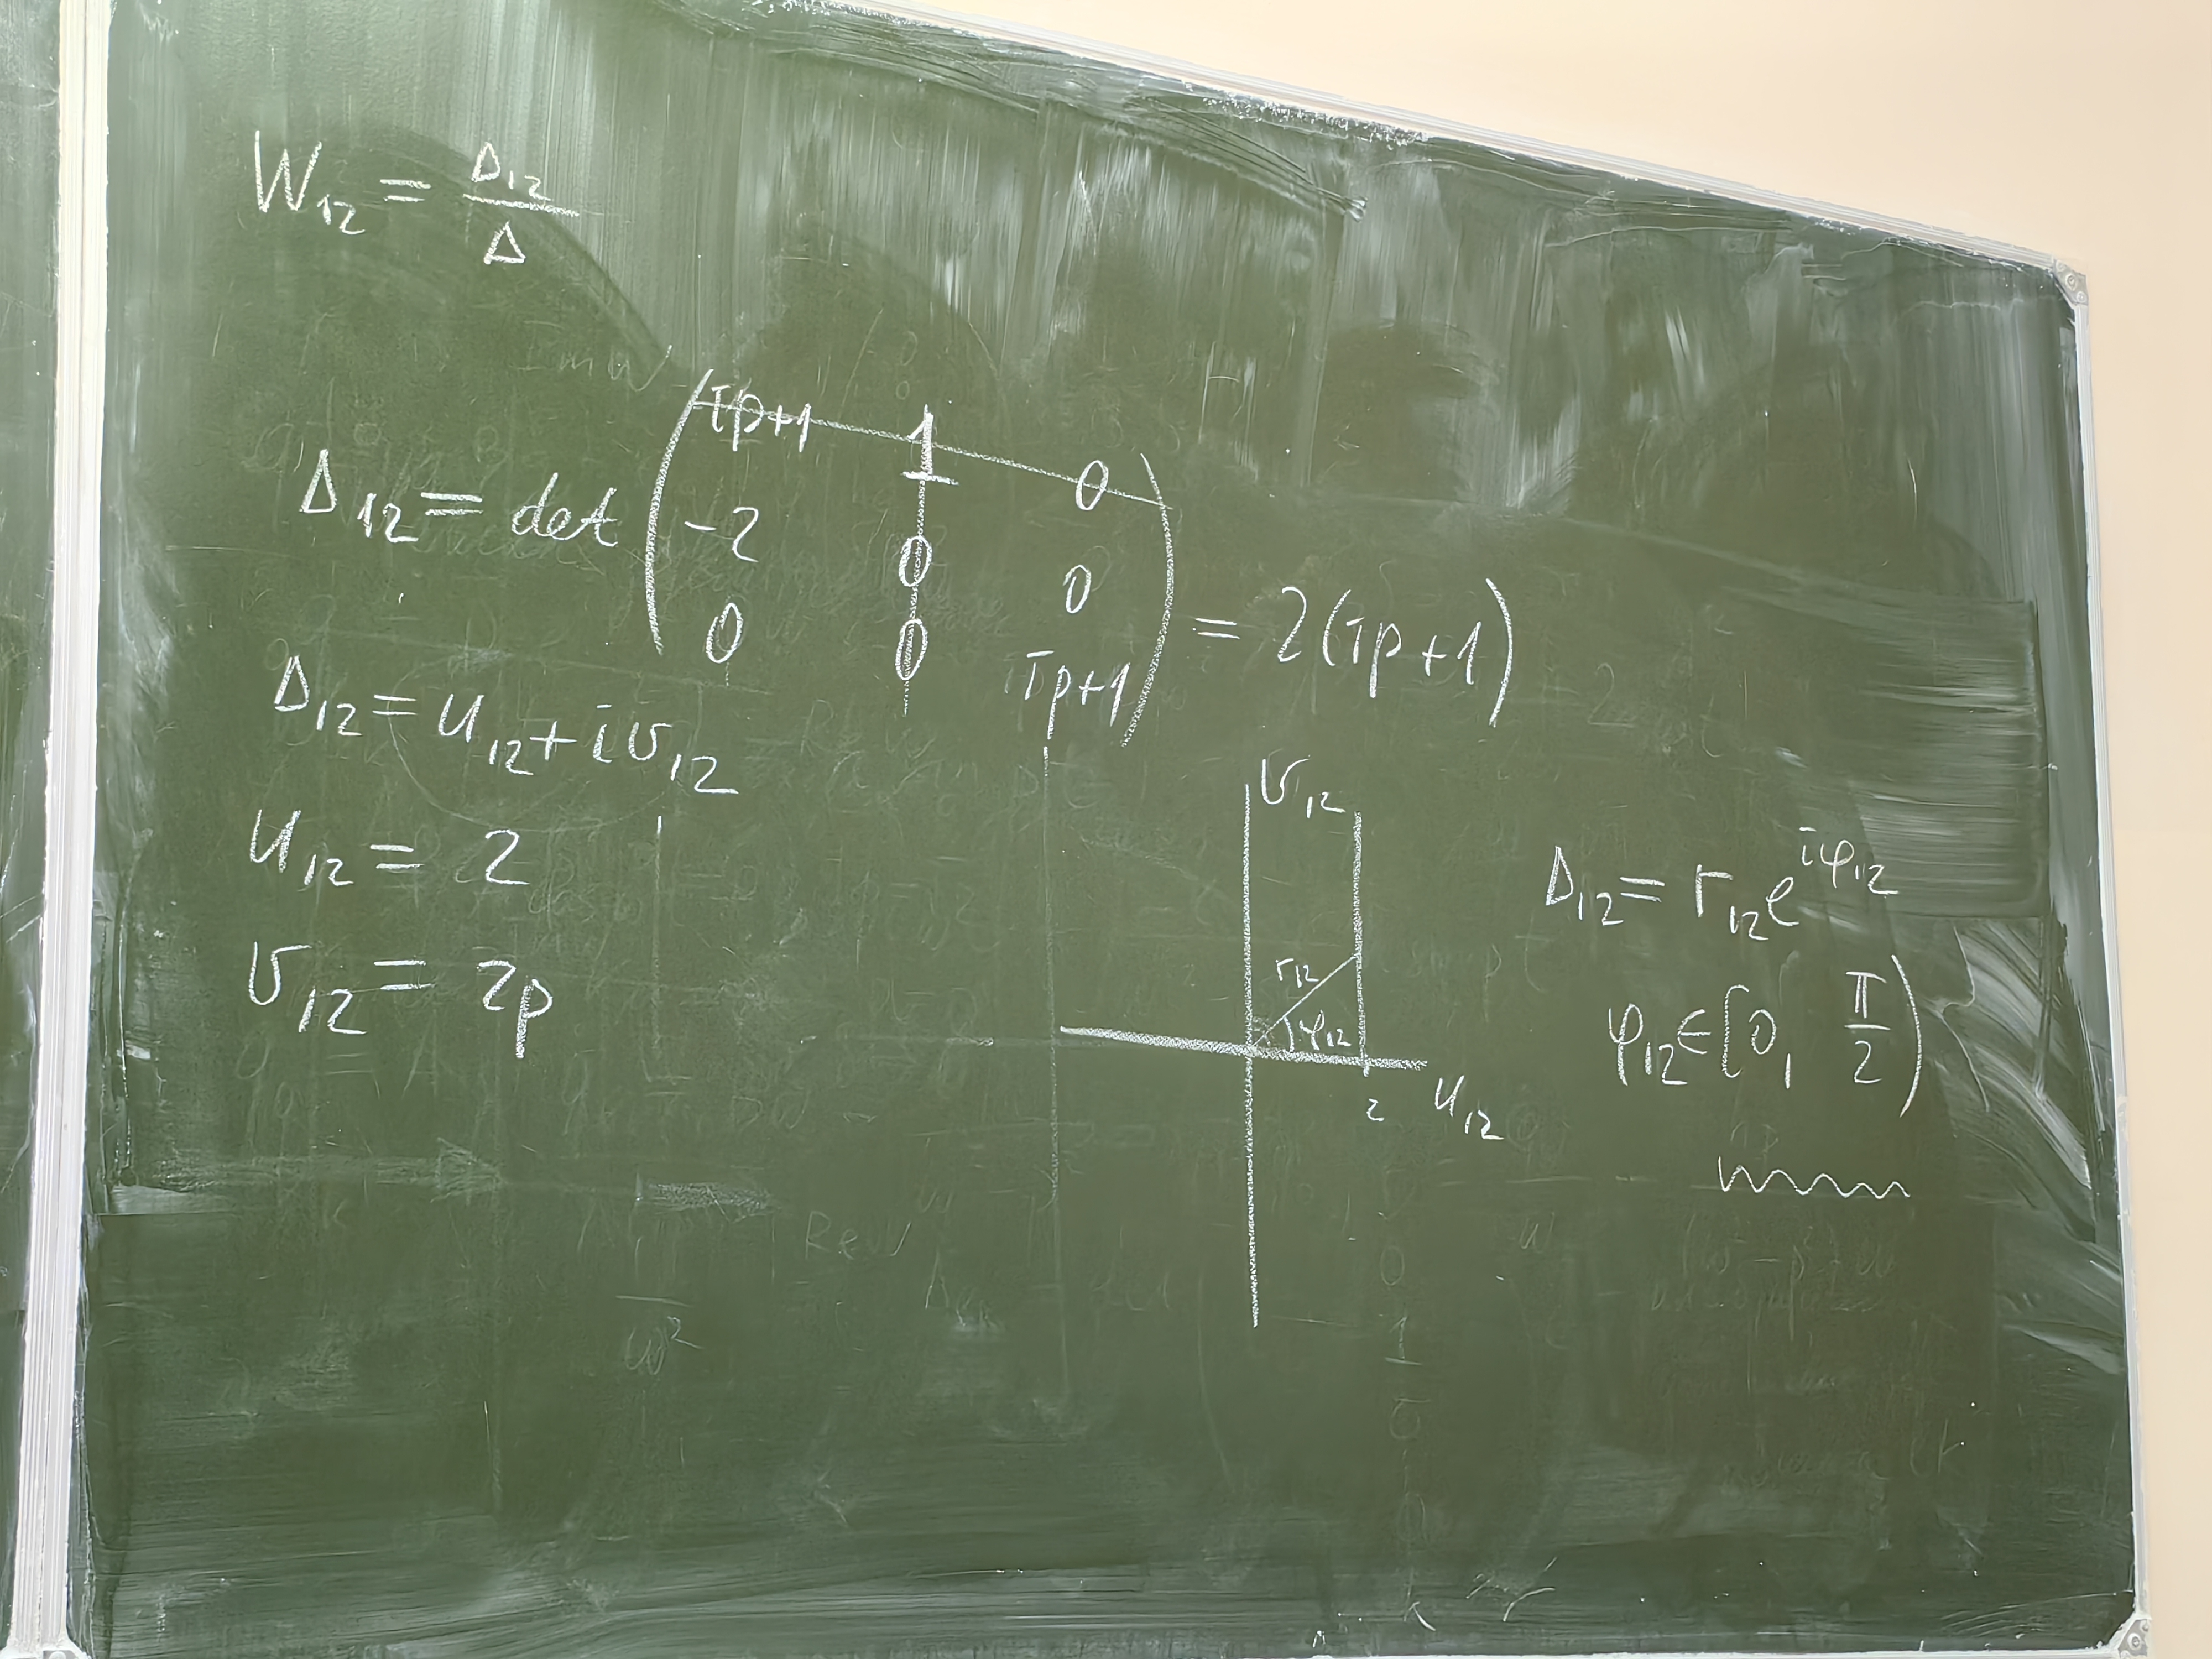 W₁₂ = Δ₁₂/Δ
Δ₁₂ = det (
ip+1 1 0
-2 0 0
0 0 ip+1
) = 2(ip+1)
Δ₁₂ = u₁₂ + iv₁₂
u₁₂ = 2
v₁₂ = 2p
v₁₂
r₁₂
φ₁₂
2
u₁₂
Δ₁₂ = r₁₂e^{iφ₁₂}
φ₁₂ ∈ [0, π/2)
Re W
ω²